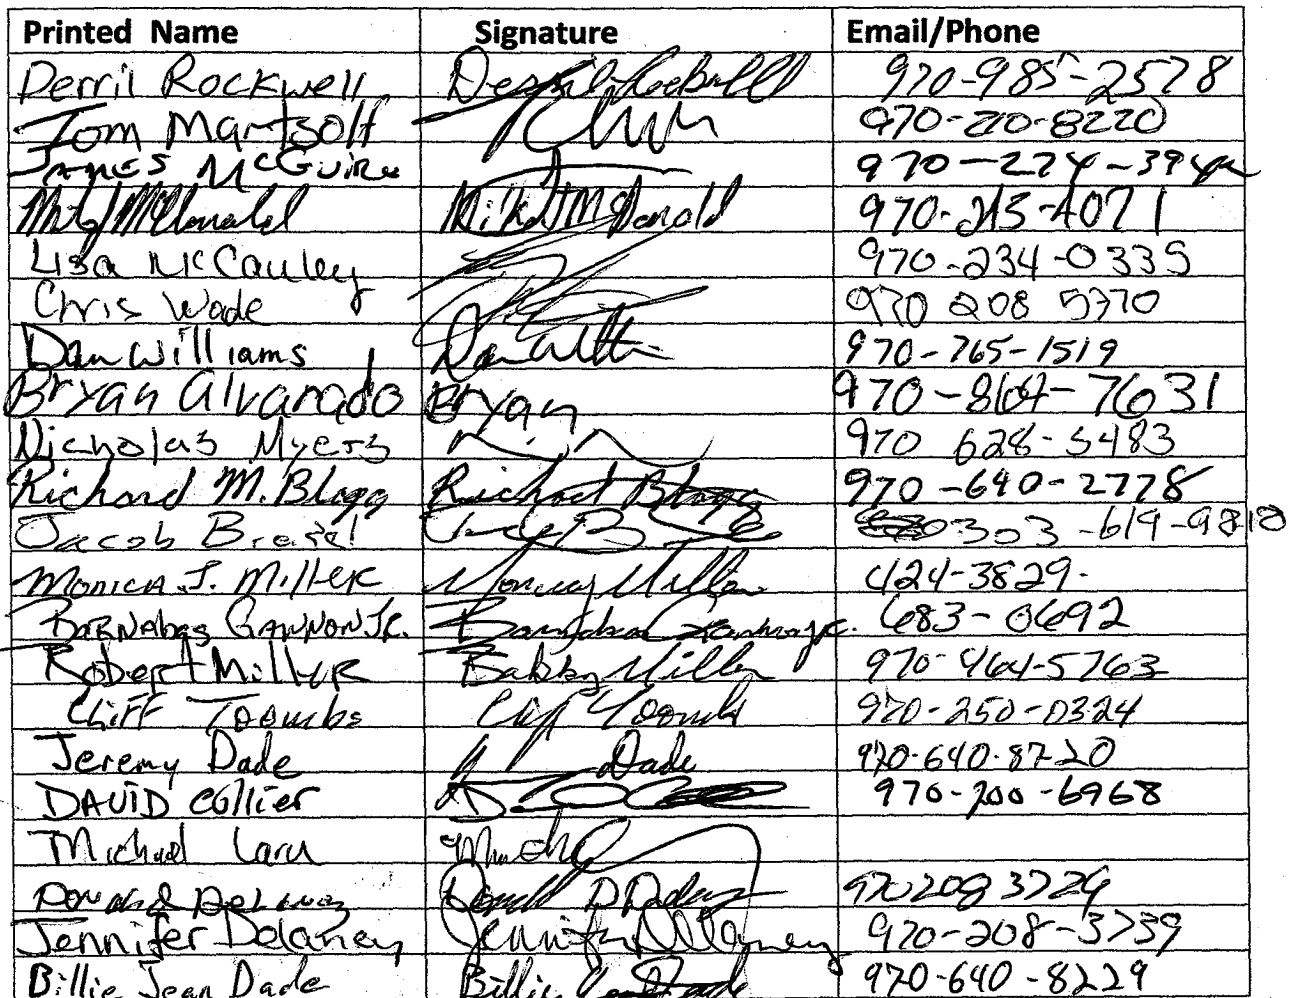 Printed Name Signature Email/Phone
Derril Rockwell 970-985-2578
Tom Martsolf 970-210-8220
JAMES McGuire 970-274-394
McDonald Mike McDonald 970-213-4071
Lisa McCauley 970-234-0335
Chris Wade 970 208 5770
Dan Williams Dan 970-765-1519
Bryan Alvarado Bryan 970-864-7631
Nicholas Myers 970 628-5483
Richard M. Blagg Richard Blagg 970-640-2778
Jacob 303-619-9818
Monica J. Miller Monica Miller 424-3829
BARNAbas GANNON JR. 683-0692
Robert Miller Bobby Miller 970-464-5763
Cliff Toombs Cliff Toombs 970-250-0324
Jeremy Dade Dade 970-640-8720
DAVID Collier 970-200-6968
Michael
Donald DeLaney Donald D 970 208 3729
Jennifer Delaney Jennifer Delaney 970-208-3739
Billie Jean Dade Billie Dade 970-640-8229